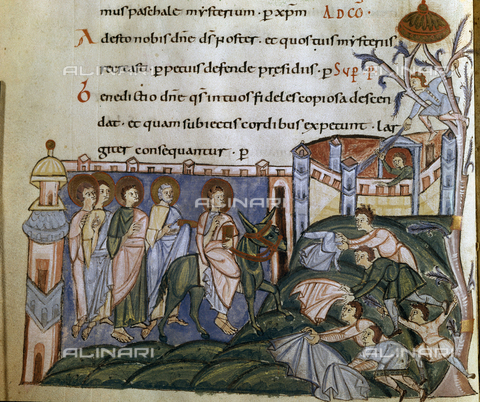 mus paschale mysterium · p xpm A D CO ·
Adesto nobis dne ds noster · et quos tuis mysteriis
recreasti · perpetuis defende presidiis · p SUP P
benedictio dne qs in tuos fideles copiosa descen
dat · et quam subiectis cordibus expetunt · lar
giter consequantur · p
ALINARI
ALINARI
ALINARI
ALINARI
ALINARI
ALINARI
ALINARI
ALINARI